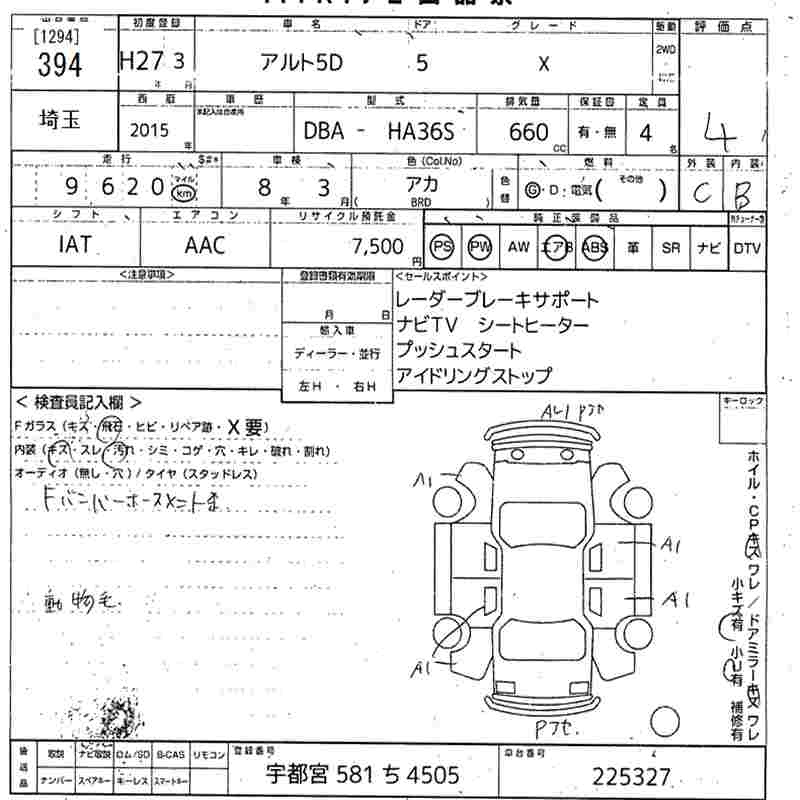 [1294]
394
初度登録 車名 ドア グレード 駆動 評価点
H27 3 アルト5D 5 X 2WD
年 月
埼玉
西暦 車歴 型式 排気量 保証書 定員
2015 DBA - HA36S 660 有・無 4 4
年 CC 名
走行 $#* 車検 色(Col.No) 燃料 外装 内装
9 6 2 0 マイル km 8年 3月 アカ 色替 G・D・電気( その他 ) C B
( BRD )
シフト エアコン リサイクル預託金 純正装備品
IAT AAC 7,500円 PS PW AW エアB ABS 革 SR ナビ DTV
<注意事項> 登録書類有効期限 <セールスポイント>
月 日
レーダーブレーキサポート
輸入車
ナビTV シートヒーター
ディーラー・並行
プッシュスタート
左H ・ 右H
アイドリングストップ
< 検査員記入欄 > キーロック
Fガラス (キズ・飛石・ヒビ・リペア跡・X要)
内装 (キズ・スレ・汚れ・シミ・コゲ・穴・キレ・破れ・割れ)
オーディオ (無し・穴) / タイヤ (スタッドレス)
Fバンパーホースメント歪
動物毛
A1
A1
A1
A1
ホイル・CPキズ ワレ / ドアミラーキズ ワレ
小キズ有 小U有 補修有
後送品 取説 ナビ取説 ロム/SD B-CAS リモコン 登録番号 車台番号
ナンバー スペアキー キーレス スマートキー 宇都宮 581 ち 4505 225327